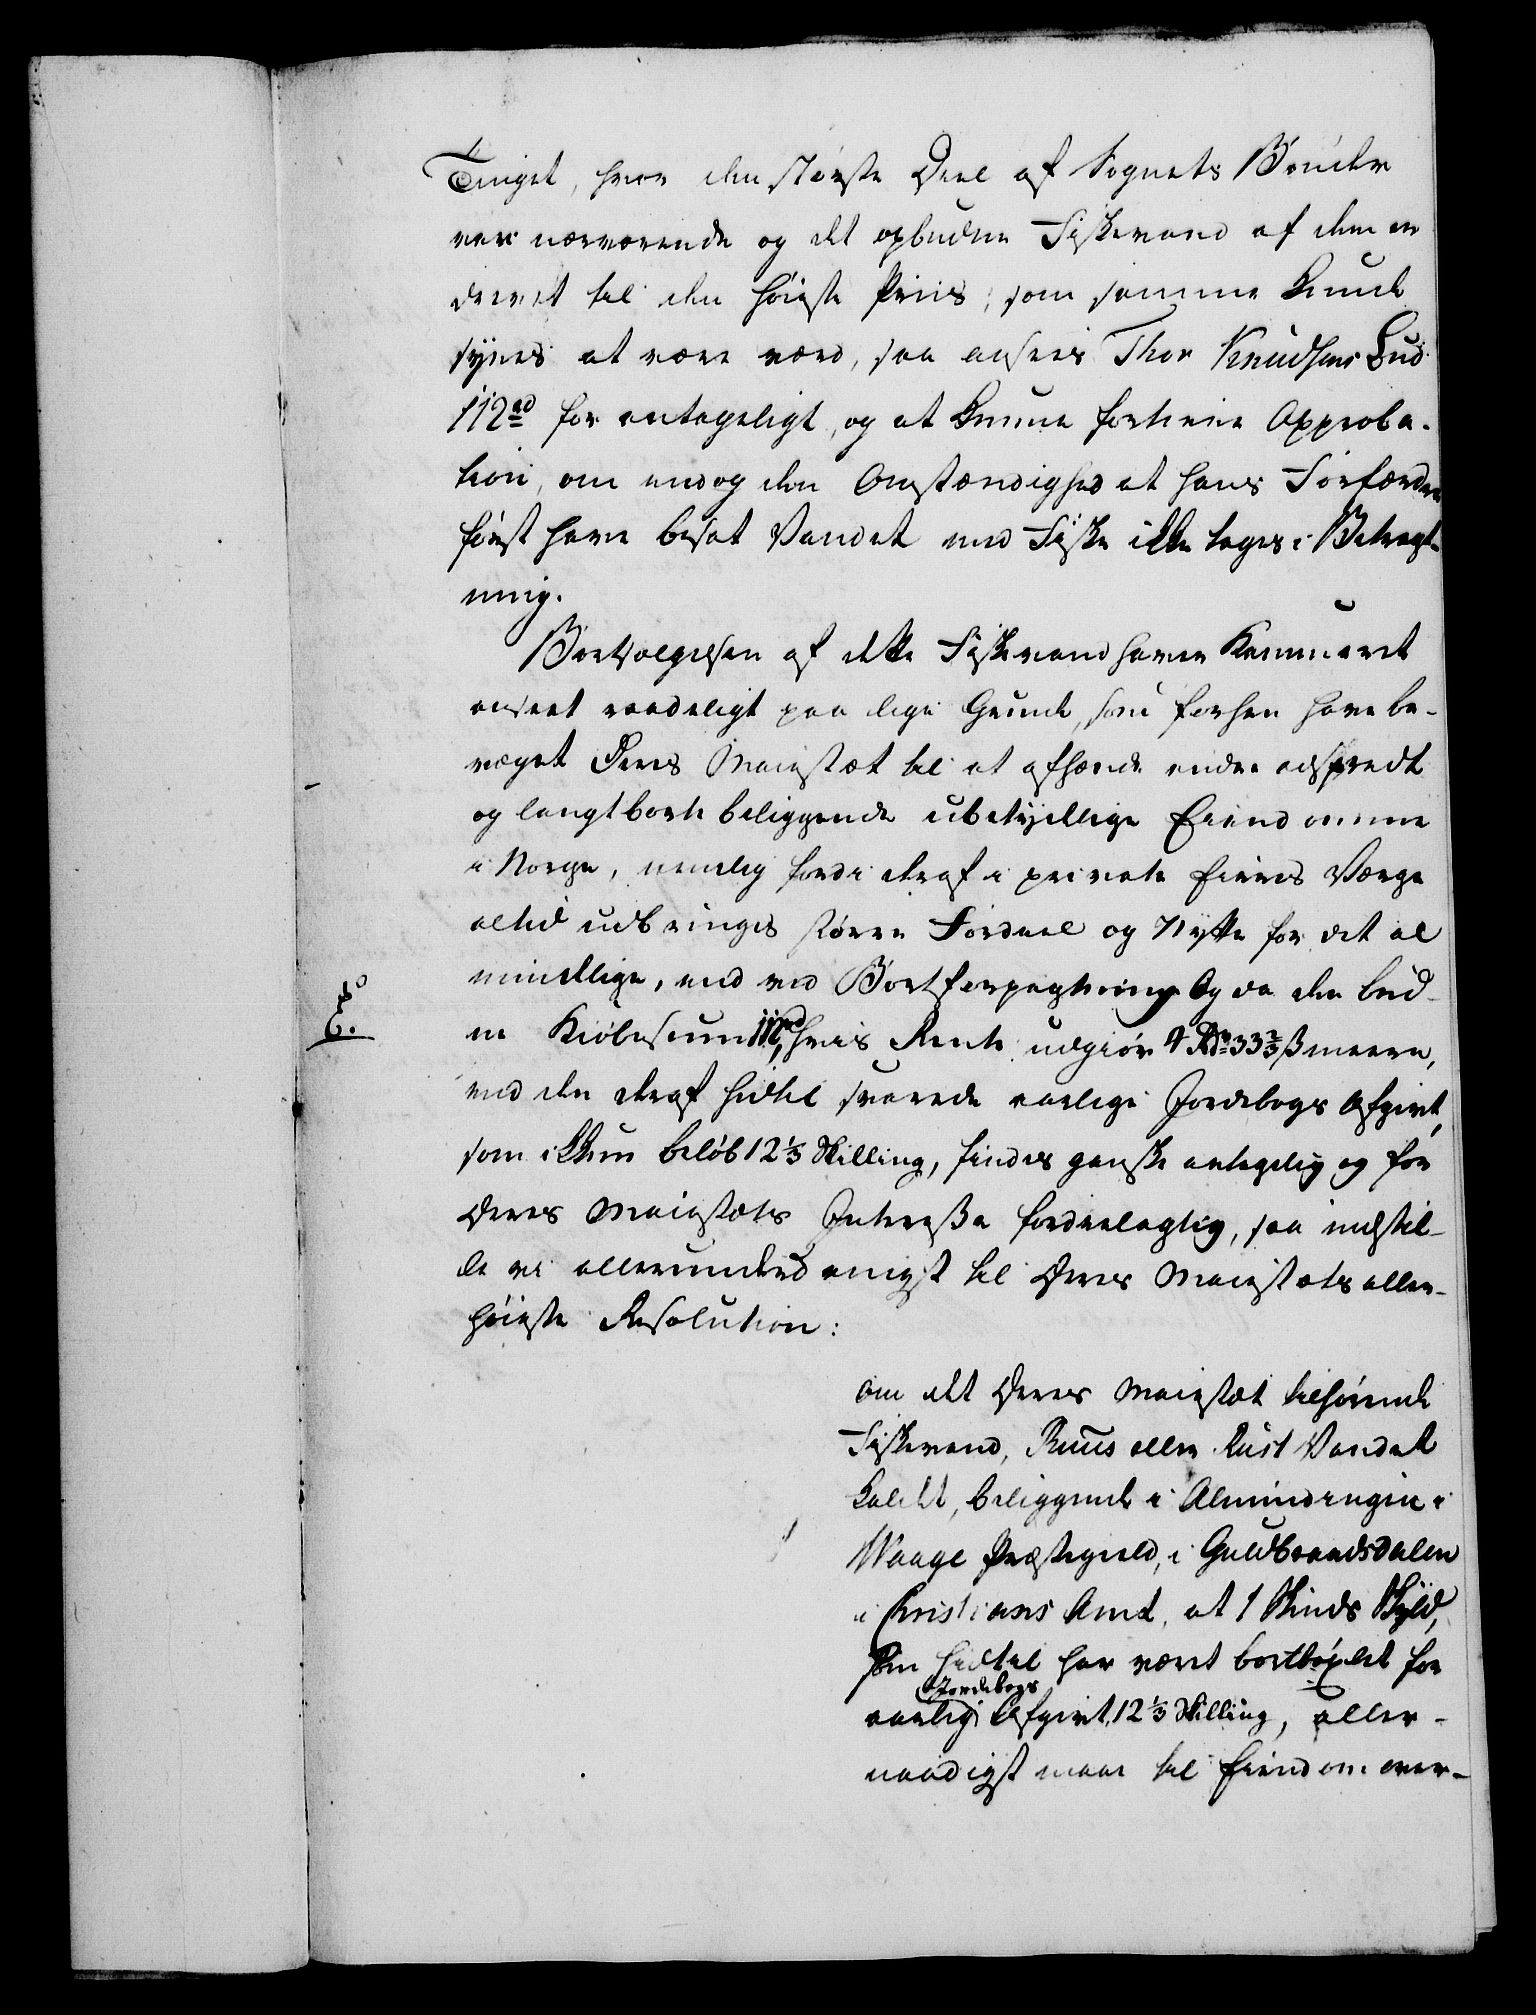 Tinget, hvor den største Deel af Sognets Bønder
var nærværende og det opbudne Fiskevand af dem er
drevet til den høieste Priis, som samme kunde
synes at være værd, saa ansees Thor Knudsens Bud
112 rd for antageligt, og at kunne fortiene Approba-
tion, om endog den Omstændighed at hans Forfædre
først have besat Vandet med Fiske ikke toges i Betragt-
ning.
Bortsælgelsen af dette Fiskevand haver Kammeret
anseet raadeligt paa lige Grunde, som forhen have be-
væget Deres Maiestæt til at afhænde andre adspredt
og langtborte beliggende ubetydelige Eiendomme
i Norge, nemlig fordi deraf i private Eieres Værge
altid udbringes større Fordeel og Nytte for det al
mindelige, end ved Bortforpagtning Og da den bud-
ne Kiøbesum 112 rd, hvis Rente udgiør 4 Rdr 33 3/5 ß meere,
end den deraf hidtil svarede aarlige Jordebogs Afgivt,
som ikkun beløb 12 1/3 Skilling, findes ganske antagelig og for
Deres Maiestæts Interesse fordeelagtig, saa indstil-
le vi allerunderdanigst til Deres Maiestæts aller-
høieste Resolution:
om det Deres Maiestæt tilhørende
Fiskevand, Ruus eller Rust Vandet
kaldet, beliggende i Almindingen i
Waage Præstegield, i Guldbrandsdalen
i Christians Amt, at 1 Skinds Skyld,
som hidtil har været bortbøxlet for
aarlig Jordebogs Afgivt 12 1/3 Skilling, aller-
naadigst maae til Eiendom over-